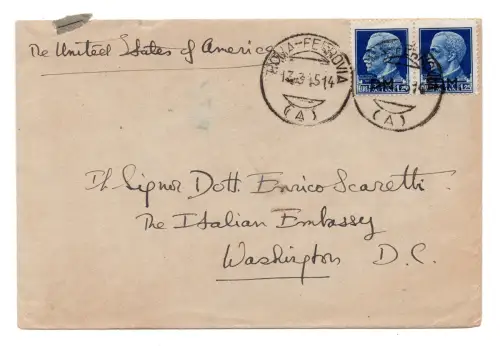 The United States of America
ROMA-FERROVIA
(A)
Il Signor Dott. Enrico Scaretti
The Italian Embassy
Washington D.C.